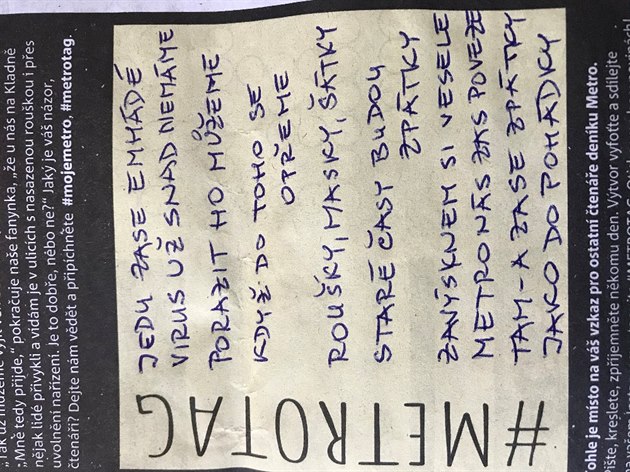 "Tak už můžeme
„Mně tedy přijde,“ pokračuje naše fanynka, „že u nás na Kladně
nějak lidé přivykli a vídám je v ulicích s nasazenou rouškou i přes
uvolnění nařízení. Je to dobře, nebo ne?“ Jaký je váš názor,
čtenáři? Dejte nám vědět a připíchněte #mojemetro, #metrotag.
#METROTAG
JEDU ZASE EMHÁDÉ
VIRUS UŽ SNAD NEMÁME
PORAZIT HO MŮŽEME
KDYŽ DO TOHO SE
OPŘEME
ROUŠKY, MASKY, ŠÁTKY
STARÉ ČASY BUDOU
ZPÁTKY
ZAVÝSKNEM SI VESELE
METRO NÁS ZAS POVEZE
TAM - A ZASE ZPÁTKY
JAKO DO POHÁDKY
ohle je místo na váš vzkaz pro ostatní čtenáře deníku Metro.
pište, kreslete, zpříjemněte někomu den. Výtvor vyfoťte a sdílejte
#METROTAG